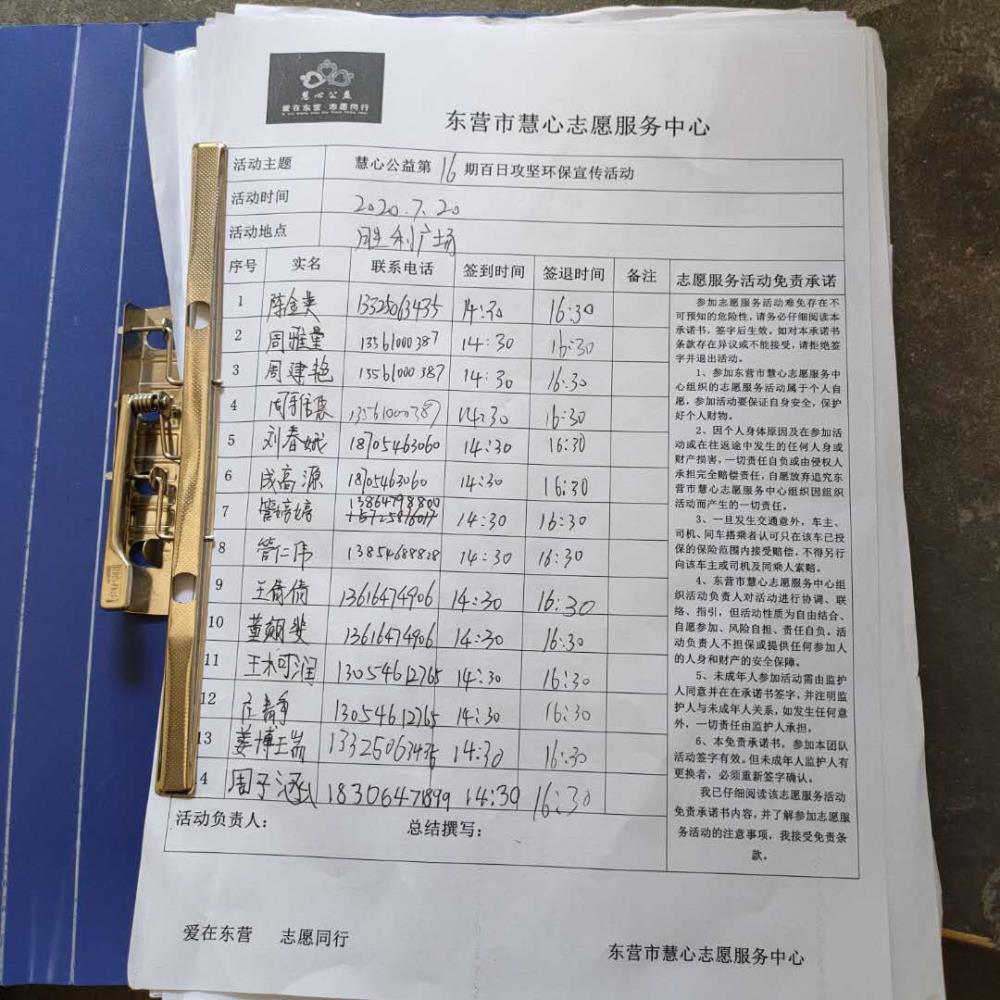 慧心公益
爱在东营 志愿同行
东营市慧心志愿服务中心
活动主题 慧心公益第16期百日攻坚环保宣传活动
活动时间 2020.7.20
活动地点 胜利广场
序号 实名 联系电话 签到时间 签退时间 备注 志愿服务活动免责承诺
1 陈金美 13325063435 14:30 16:30
2 周雅量 13561000387 14:30 16:30
3 周建艳 13561000387 14:30 16:30
4 13561000387 14:30 16:30
5 刘春娥 18705463060 14:30 16:30
6 成高源 18705463060 14:30 16:30
7 管婷婷 13864798800 14:30 16:30
8 管仁伟 13854688828 14:30 16:30
9 王倩倩 13616474906 14:30 16:30
10 董翊斐 13616474906 14:30 16:30
11 王柯润 13054612765 14:30 16:30
12 13054612765 14:30 16:30
13 姜博瑞 13325063435 14:30 16:30
4 周子涵 18306471899 14:30 16:30
活动负责人： 总结撰写：
参加志愿服务活动难免存在不
可预知的危险性，请务必仔细阅读本
承诺书，签字后生效。如对本承诺书
条款存在异议或不能接受，请拒绝签
字并退出活动。
1、参加东营市慧心志愿服务中
心组织的志愿服务活动属于个人自
愿，参加活动要保证自身安全，保护
好个人财物。
2、因个人身体原因及在参加活
动或在往返途中发生的任何人身或
财产损害，一切责任自负或由侵权人
承担完全赔偿责任，自愿放弃追究东
营市慧心志愿服务中心组织因组织
活动而产生的一切责任。
3、一旦发生交通意外，车主、
司机、同车搭乘者认可只在该车已投
保的保险范围内接受赔偿，不得另行
向该车主或司机及同乘人索赔。
4、东营市慧心志愿服务中心组
织活动负责人对活动进行协调、联
络、指引，但活动性质为自由结合、
自愿参加、风险自担、责任自负。活
动负责人不担保或提供任何参加人
的人身和财产的安全保障。
5、未成年人参加活动需由监护
人同意并在在承诺书签字，并注明监
护人与未成年人关系，如发生任何意
外，一切责任由监护人承担。
6、本免责承诺书，参加本团队
活动签字有效。但未成年人监护人有
更换者，必须重新签字确认。
我已仔细阅读该志愿服务活动
免责承诺书内容，并了解参加志愿服
务活动的注意事项，我接受免责条
款。
爱在东营 志愿同行
东营市慧心志愿服务中心